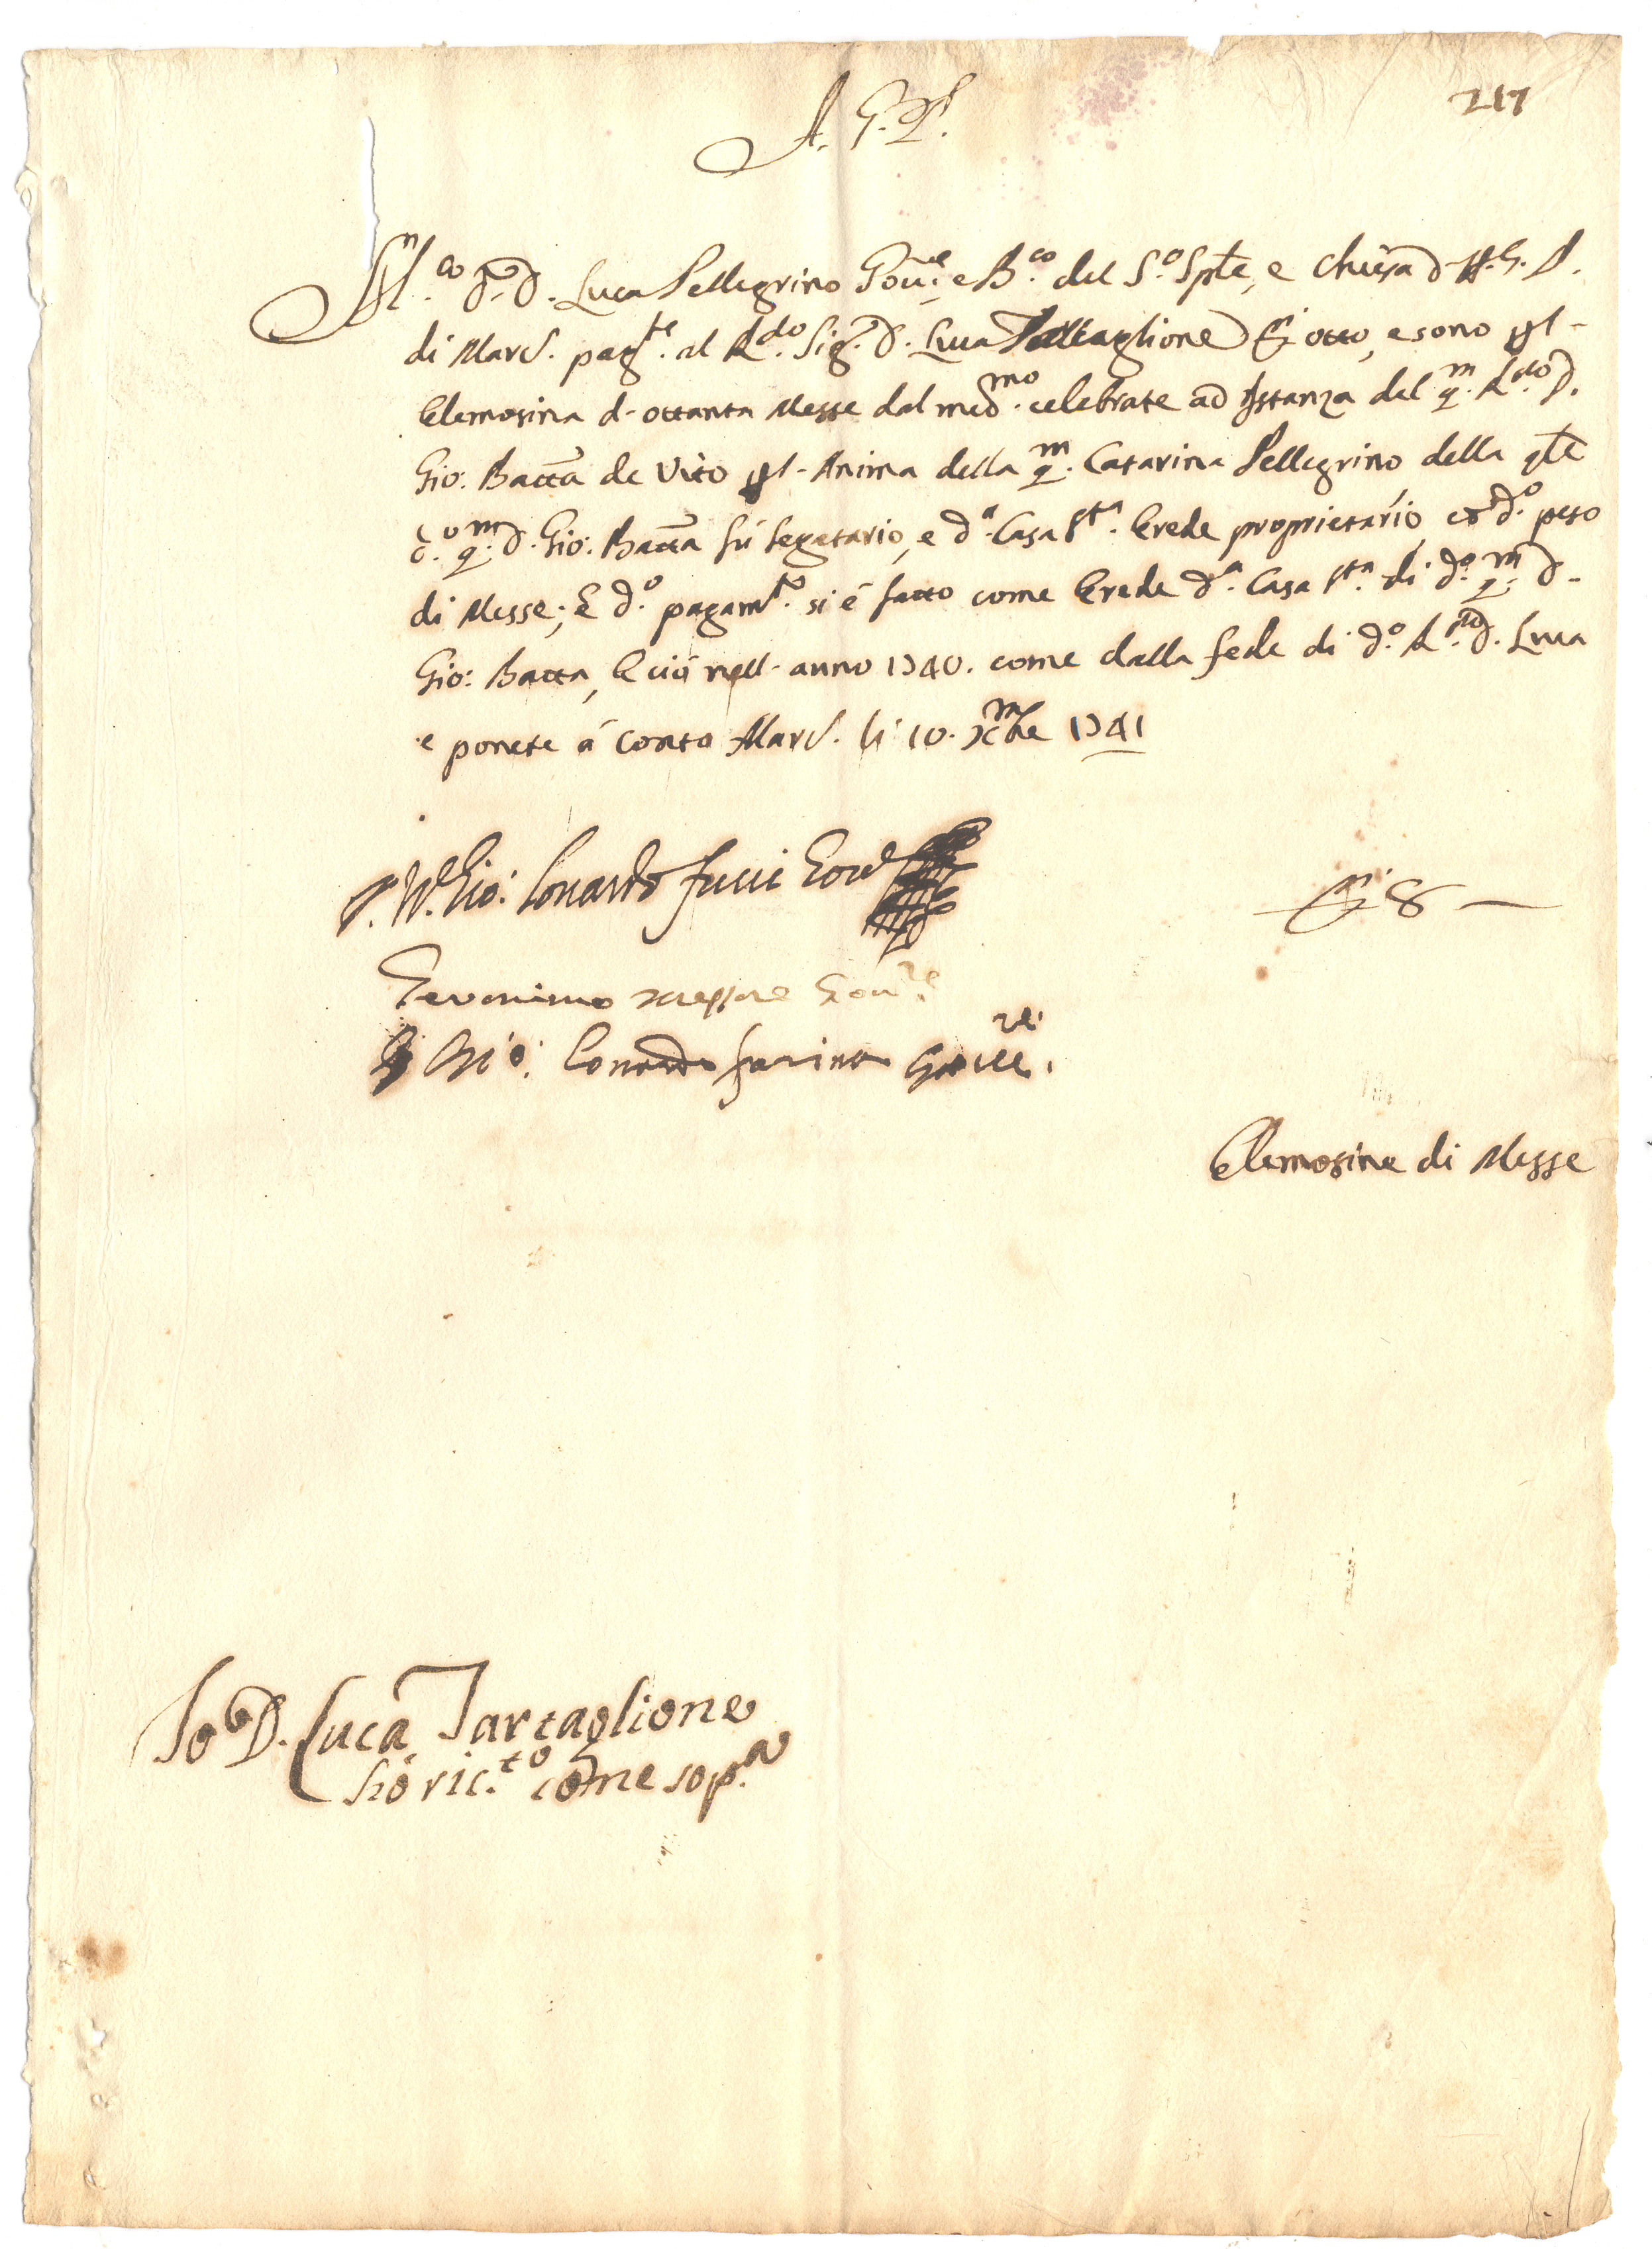 217
A. G. P.
M.co Sr. D. Luca Pellegrino Gou.re, e B.co del S.o Spte, e Chiesa d. A. G. P.
di Marc. pag.te al R.do Sig.r D. Luca Tartaglione D.ti otto, e sono pl-
Elemosina d- ottanta Messe dal med.mo celebrate ad Istanza del q.m R.do D.
Gio: Batta de Vito pl- Anima della q.m Catarina Pellegrino, della qle
d.o q.m D. Gio: Batta fù legatario, e d.a Casa S.ta Erede proprietario, et d.o peso
di Messe; E d.o pagam.to si é fatto come Erede d.a Casa S.ta di d.o q.m D-
Gio: Batta, E ciò nell- anno 1740. come dalla fede di d.o R.do D. Luca
e ponete á Conto Marc. li 10. Xmbre 1741
Gio: Lonardo fucci Gou.re
D.ti 8 —
Geronimo Gou.re
Gio: Lonardo farina Gou.re
Elemosine di Messe
Io D. Luca Tartaglione
hó ric.to come sop.a